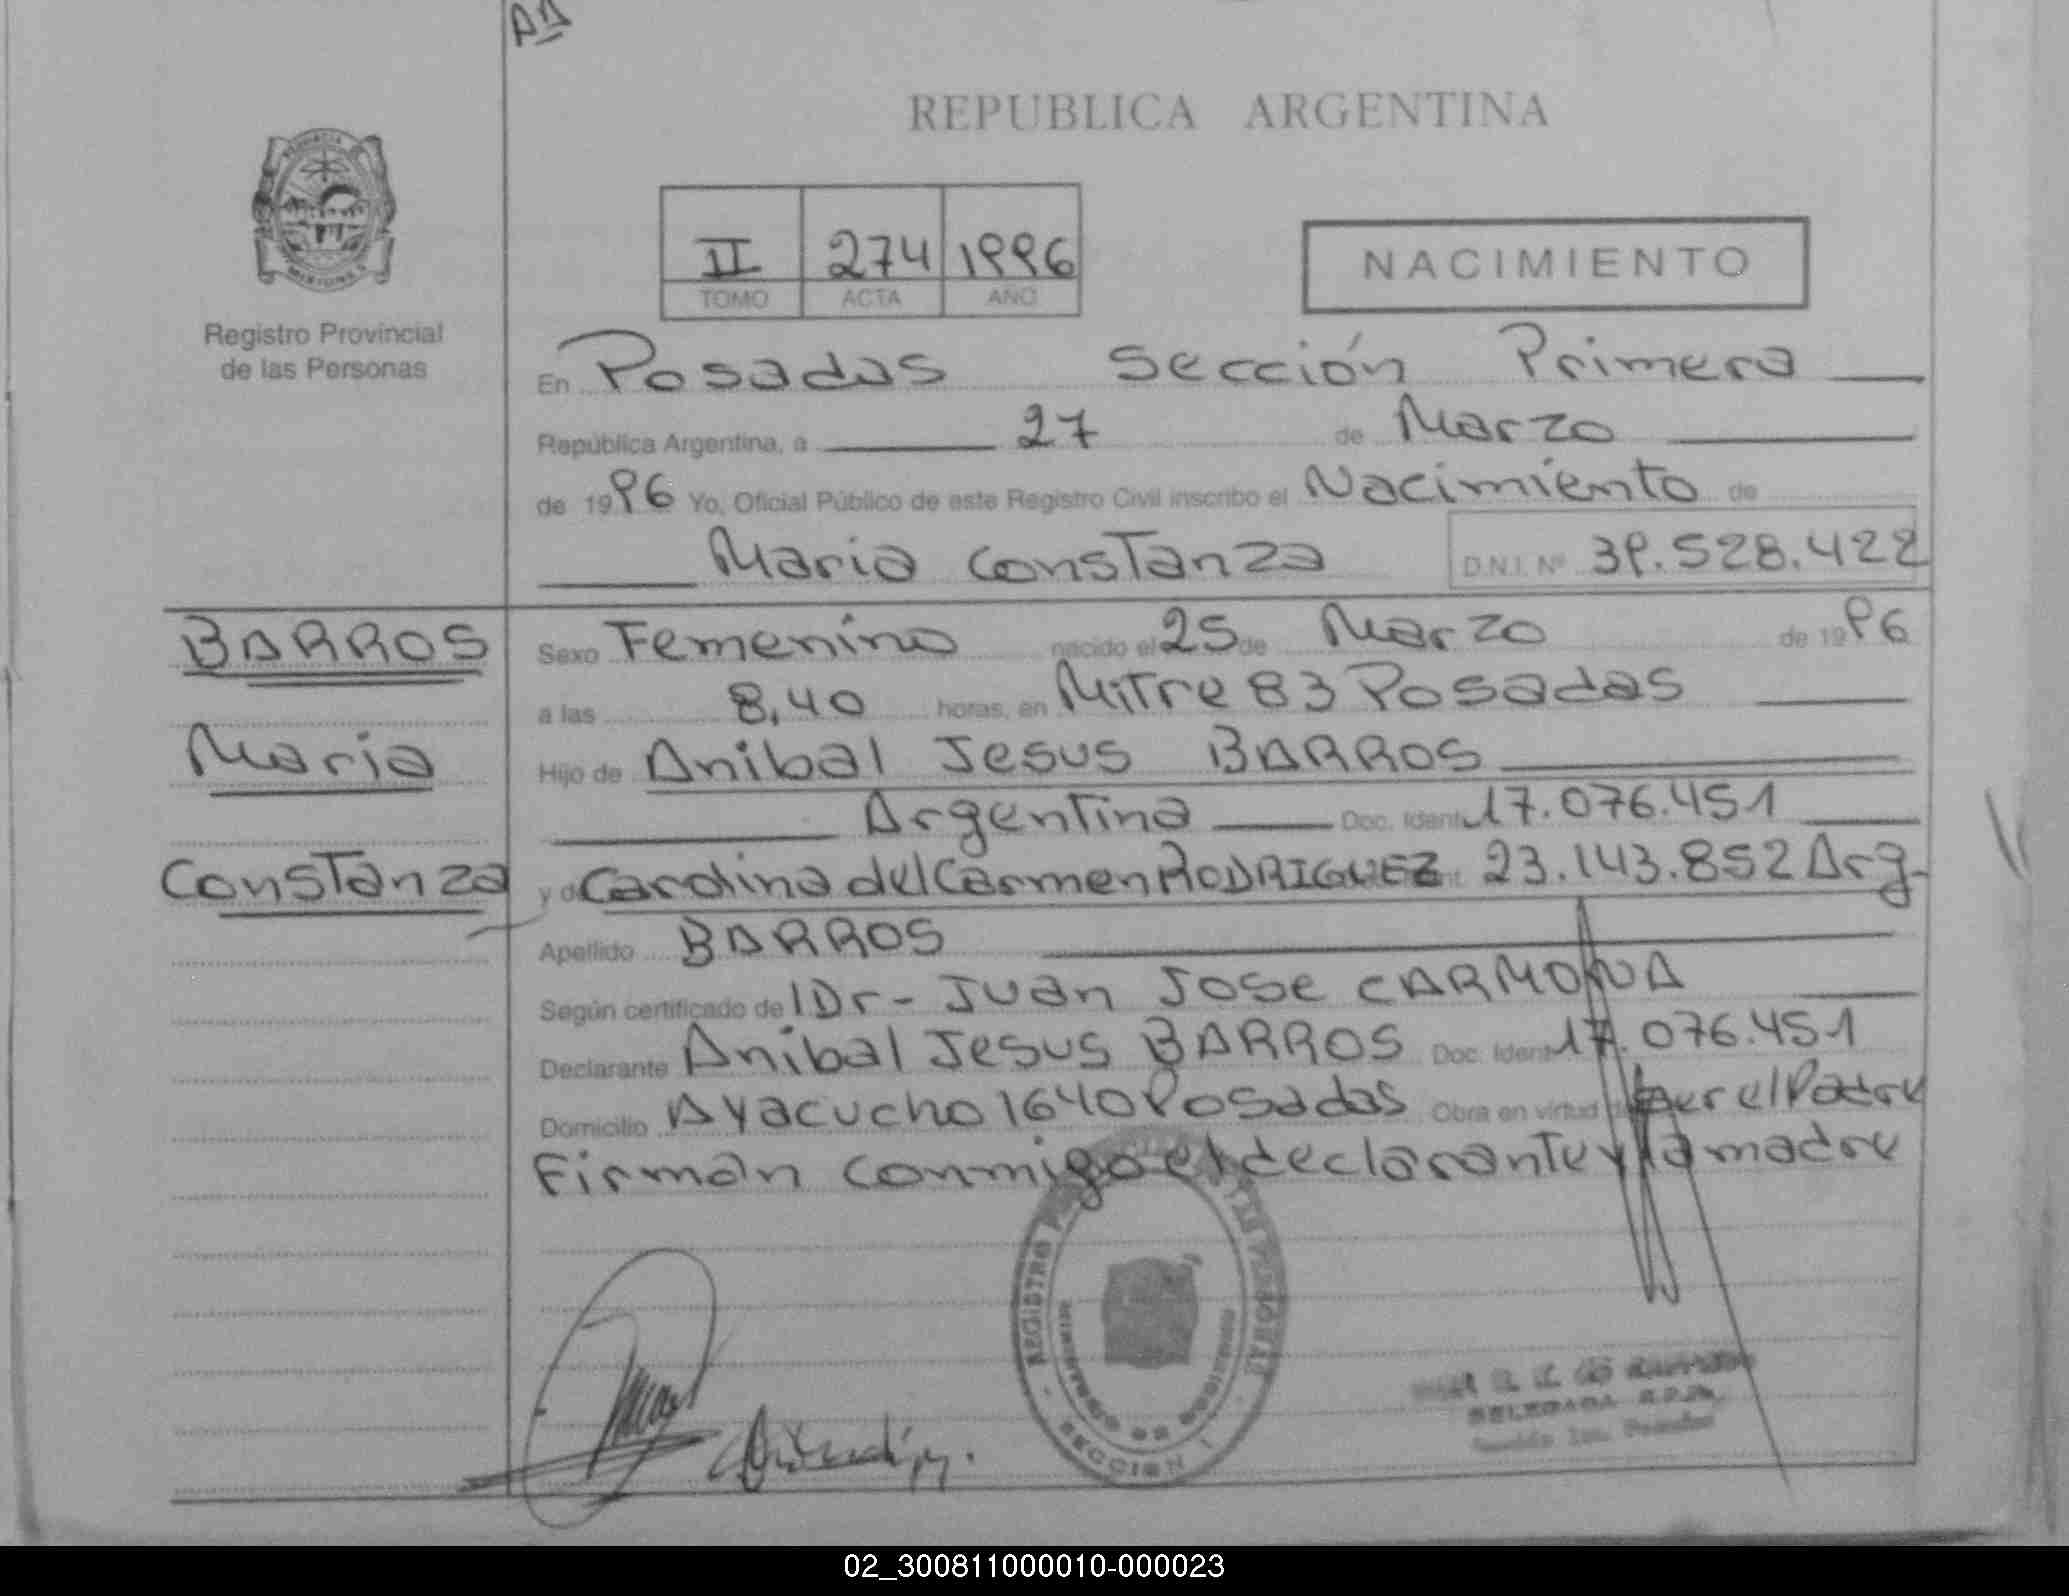 AA
REPUBLICA ARGENTINA
II 274 1996
TOMO ACTA AÑO
NACIMIENTO
Registro Provincial
de las Personas
En Posadas Sección Primera
República Argentina, a 27 de Marzo
de 1996 Yo, Oficial Público de este Registro Civil inscribo el Nacimiento de
Maria Constanza D.N.I. Nº 39.528.422
BARROS
Maria
Constanza
Sexo Femenino nacido el 25 de Marzo de 1996
a las 8,40 horas, en Mitre 83 Posadas
Hijo de Anibal Jesus BARROS
Argentina Doc. Ident. 17.076.451
y de Carolina del Carmen RODRIGUEZ 23.143.852 Arg.
Apellido BARROS
Según certificado de Dr- Juan Jose CARMONA
Declarante Anibal Jesus BARROS Doc. Ident. 17.076.451
Domicilio Ayacucho 1640 Posadas Obra en virtud de ser el Padre
Firman conmigo el declarante y la madre
REGISTRO PERSONAS
MISIONES
SECCION 1
DELEGADA R.P.P.
02_300811000010-000023